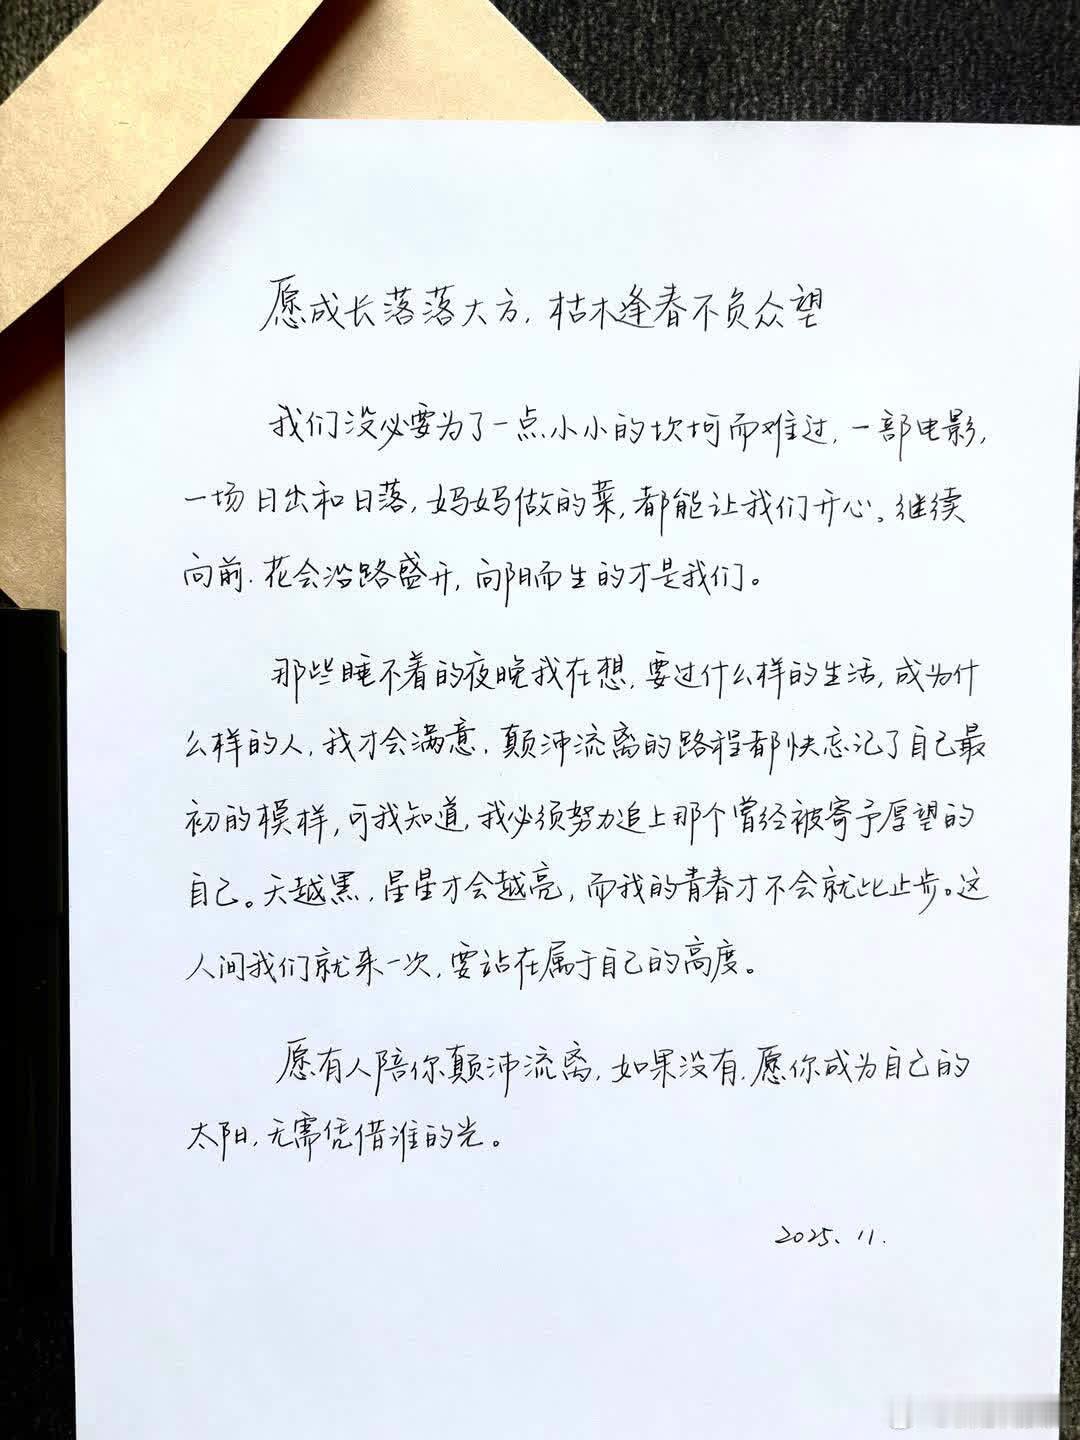 愿成长落落大方，枯木逢春不负众望
我们没必要为了一点小小的坎坷而难过，一部电影，
一场日出和日落，妈妈做的菜，都能让我们开心。继续
向前.花会沿路盛开，向阳而生的才是我们。
那些睡不着的夜晚我在想，要过什么样的生活，成为什
么样的人，我才会满意，颠沛流离的路程都快忘记了自己最
初的模样，可我知道，我必须努力追上那个曾经被寄予厚望的
自己。天越黑，星星才会越亮，而我的青春才不会就此止步。这
人间我们就来一次，要站在属于自己的高度。
愿有人陪你颠沛流离，如果没有，愿你成为自己的
太阳，无需凭借谁的光。
2025、11.